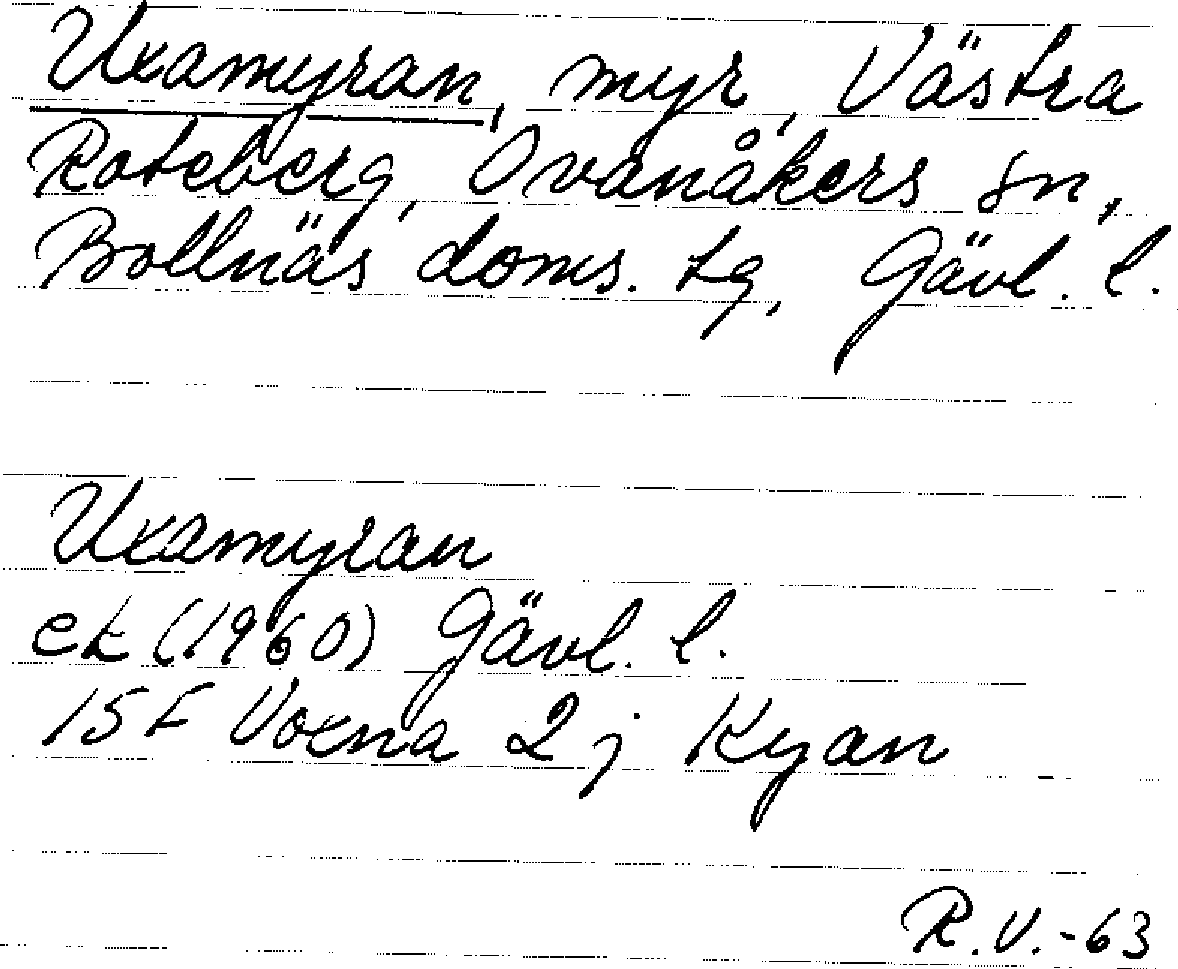 Uxamyran, myr, Västra
Roteberg, Ovanåkers sn,
Bollnäs doms. tg, Gävl. l.
Uxamyran
ek (1960) Gävl. l.
15F Voxna 2 j Kyan
R.V.-63